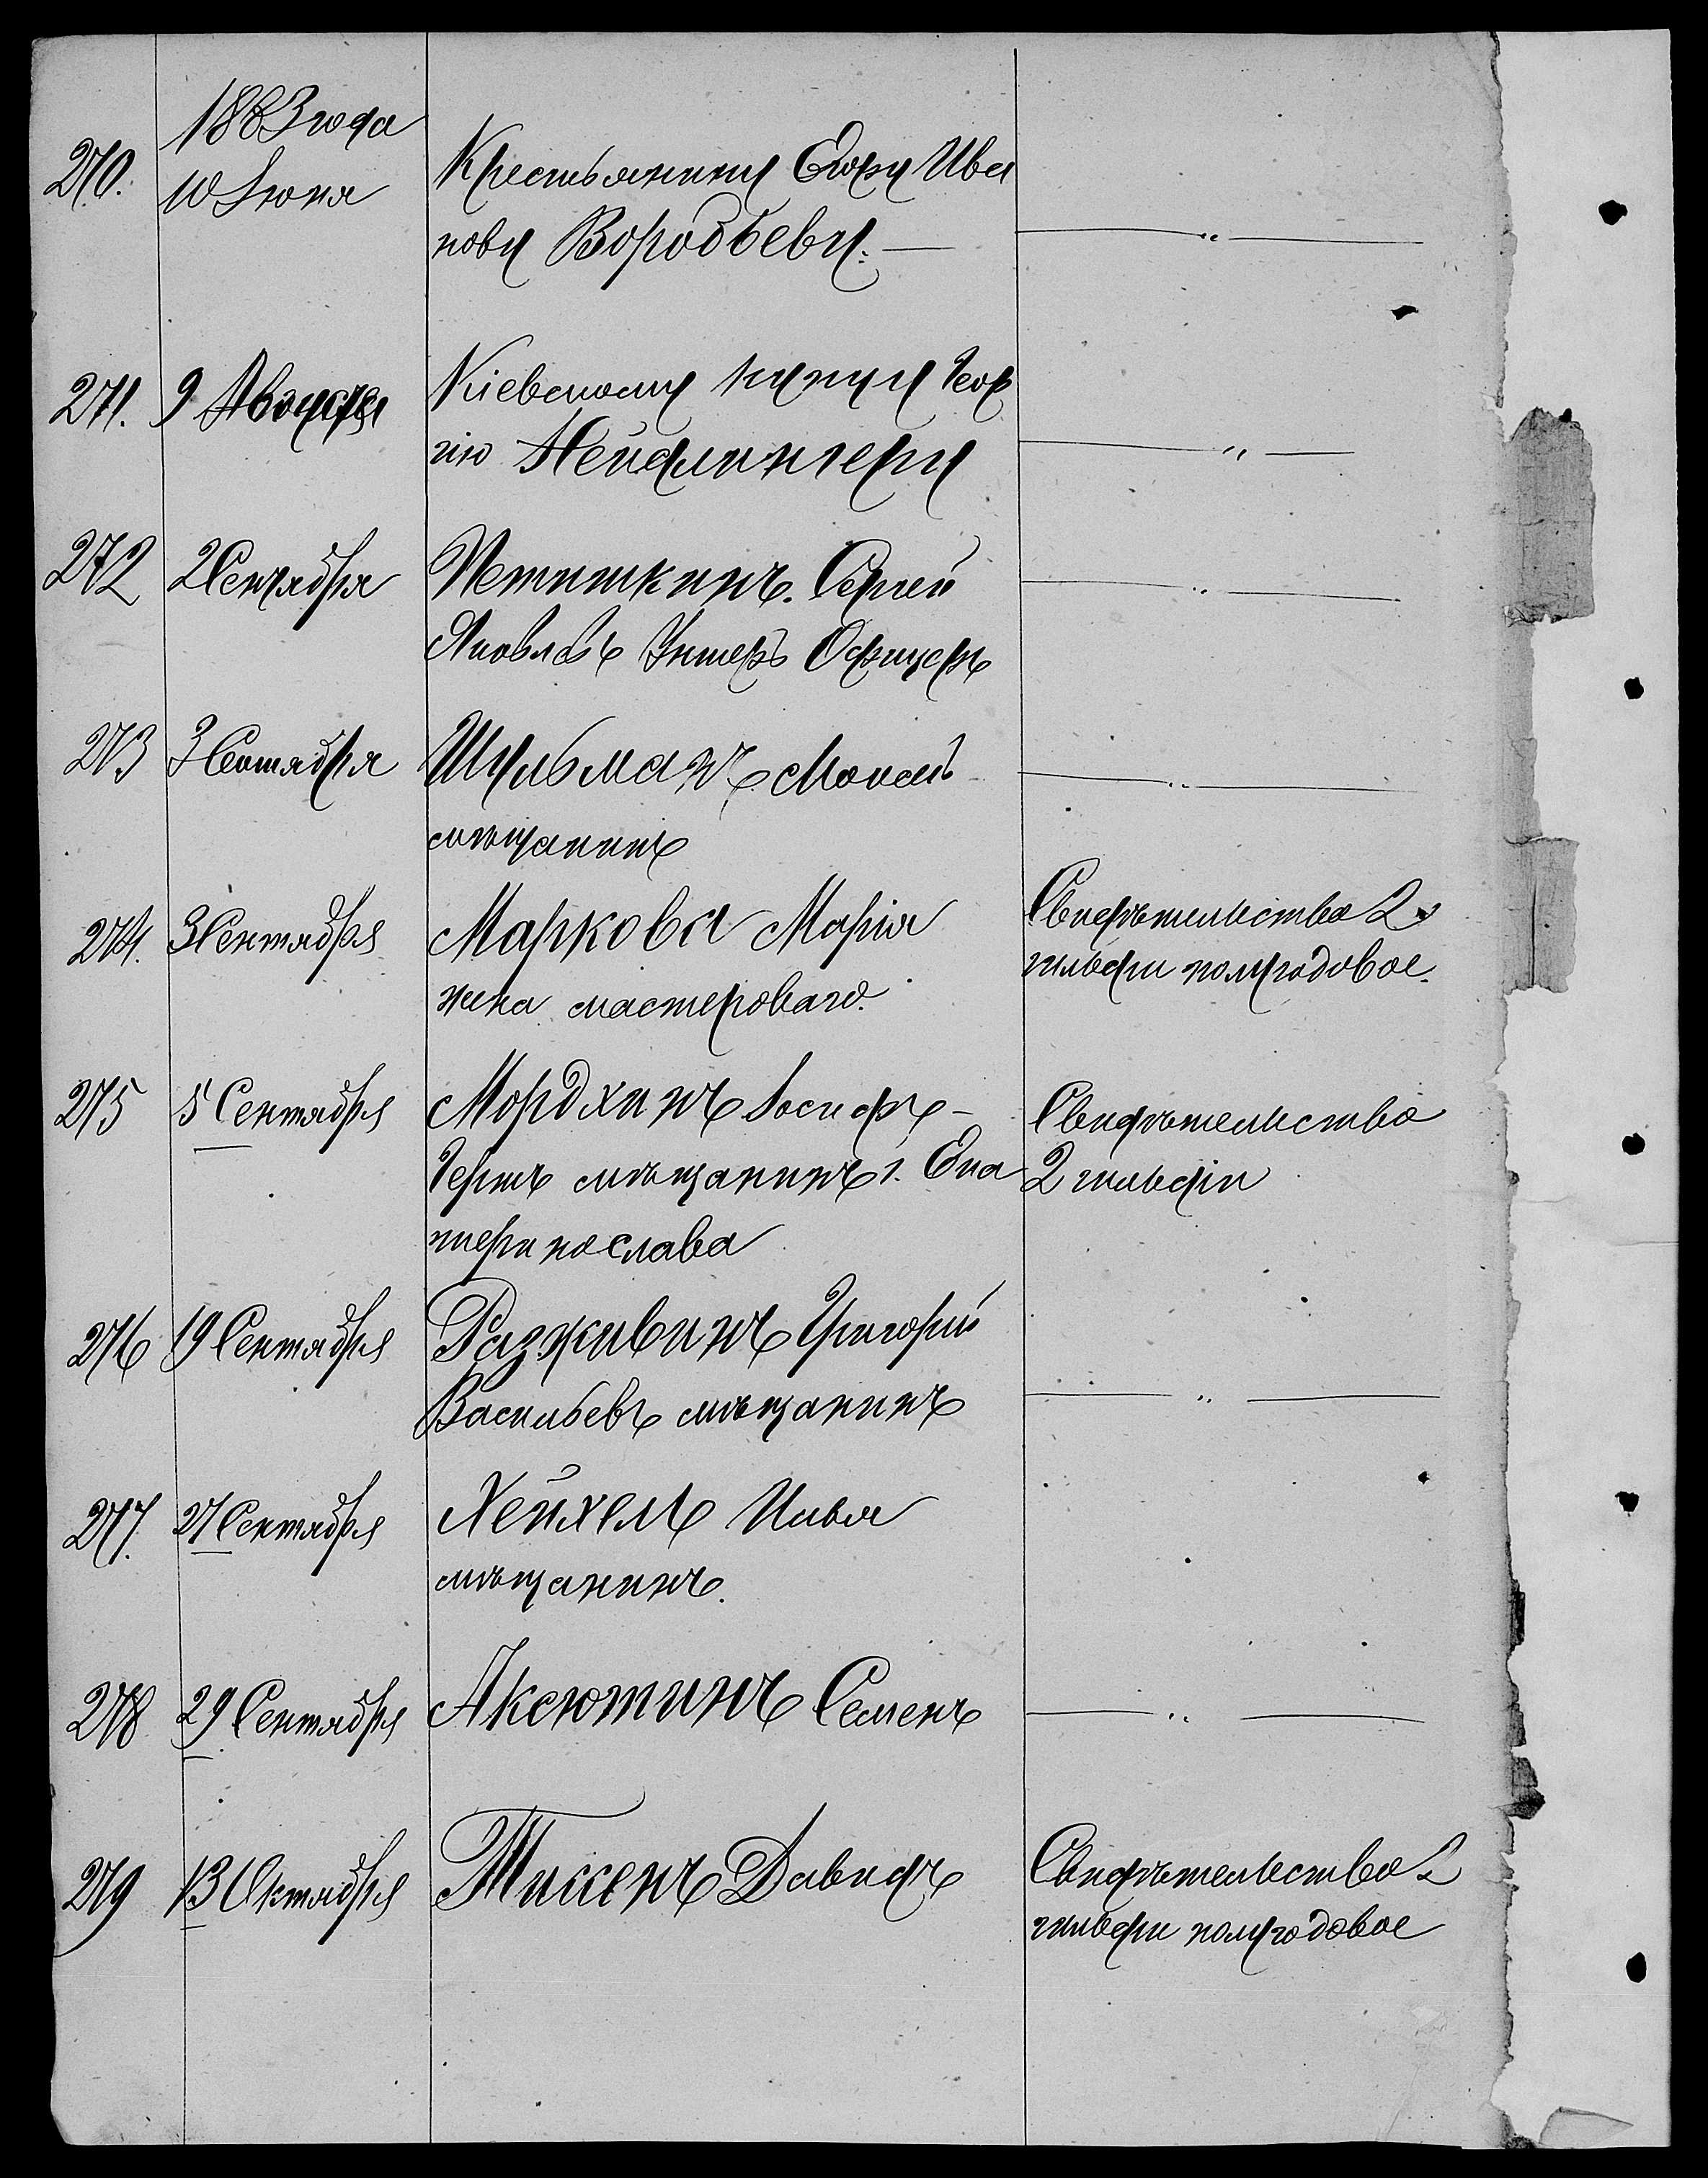 1883 года
270. 10 Іюня Крестьянину Егору Ива
нову Воробьеву. — — „ —
271. 9 Августа Кіевскому купцу Геор
гію Нейдлингеру — „ —
272 2 Сентября Петишкинъ. Сергей — „ —
Яковлевъ Унтеръ Офицеръ
273 3 Сентября Шульманъ Моисей — „ —
мѣщанинъ
274. 3 Сентября Маркова Марія Свидѣтельство 2
жена мастероваго. гильдіи полугодовое.
275 5 Сентября Мордхинъ Іосифъ - Свидѣтельство
Герцъ мѣщанинъ г. Ека 2 гильдіи
теринослава
276 19 Сентября Разживинъ Григорій
Васильевъ мѣщанинъ — „ —
277. 27 Сентября Хейхель Илья
мѣщанинъ.
278 29 Сентября Аксютинъ Семенъ — „ —
279 13 Октября Тиссенъ Давидъ Свидѣтельство 2
гильдіи полугодовое